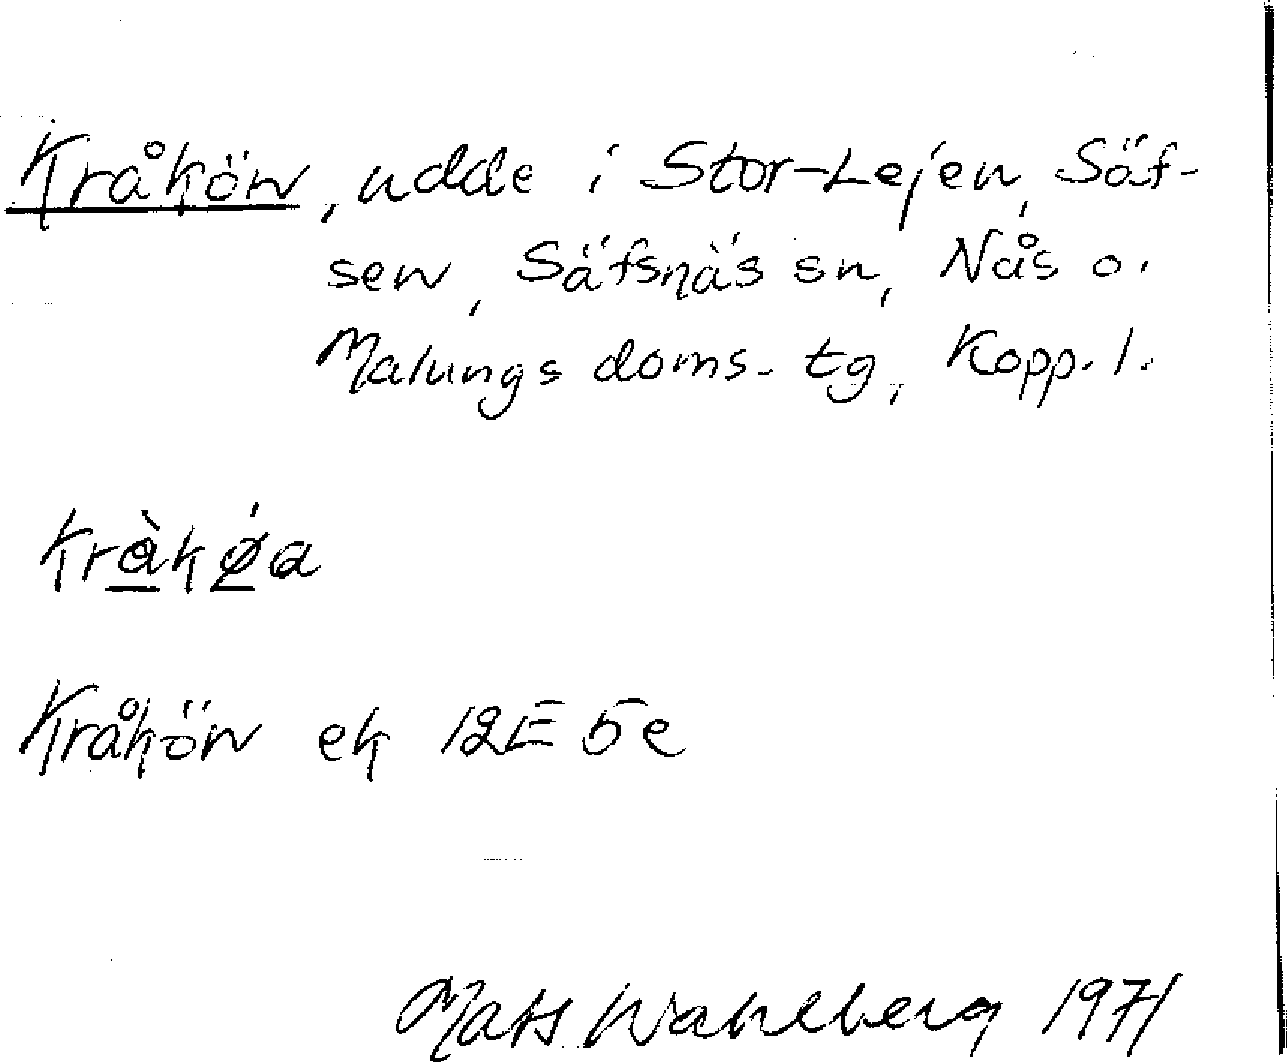 Kråkön, udde i Stor-Lejen, Säf-
sen, Säfsnäs sn, Nås o.
Malungs doms. tg, Kopp. l.
kràkǿa
Kråkön ek 12E 5e
Mats Wahlberg 1971